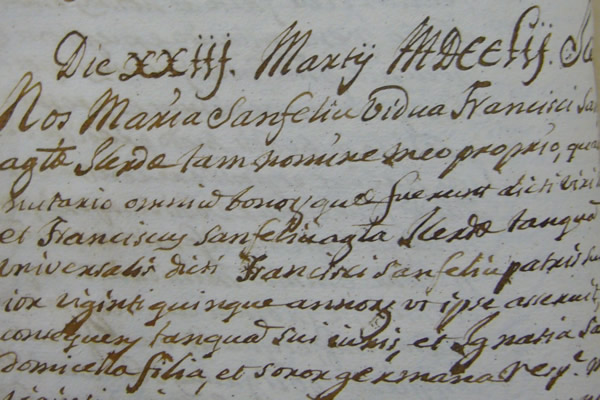 Die XXIIJ. Martij MDCCLIJ.
Nos Maria Sanfeliu Vidua Francisci San
agtæ Ilerdæ tam nomine meo proprio, qua
nutario omniũ bonoꝝ quæ fuerunt dicti viri
et Franciscus Sanfeliu agta Ilerdæ tanquã
universalis dicti Francisci Sanfeliu patris
ior viginti quinque annoꝝ ut ipse asseruit
consequens tanquã sui iuris, et Ignatia Sa
Domicella filia, et soror germana